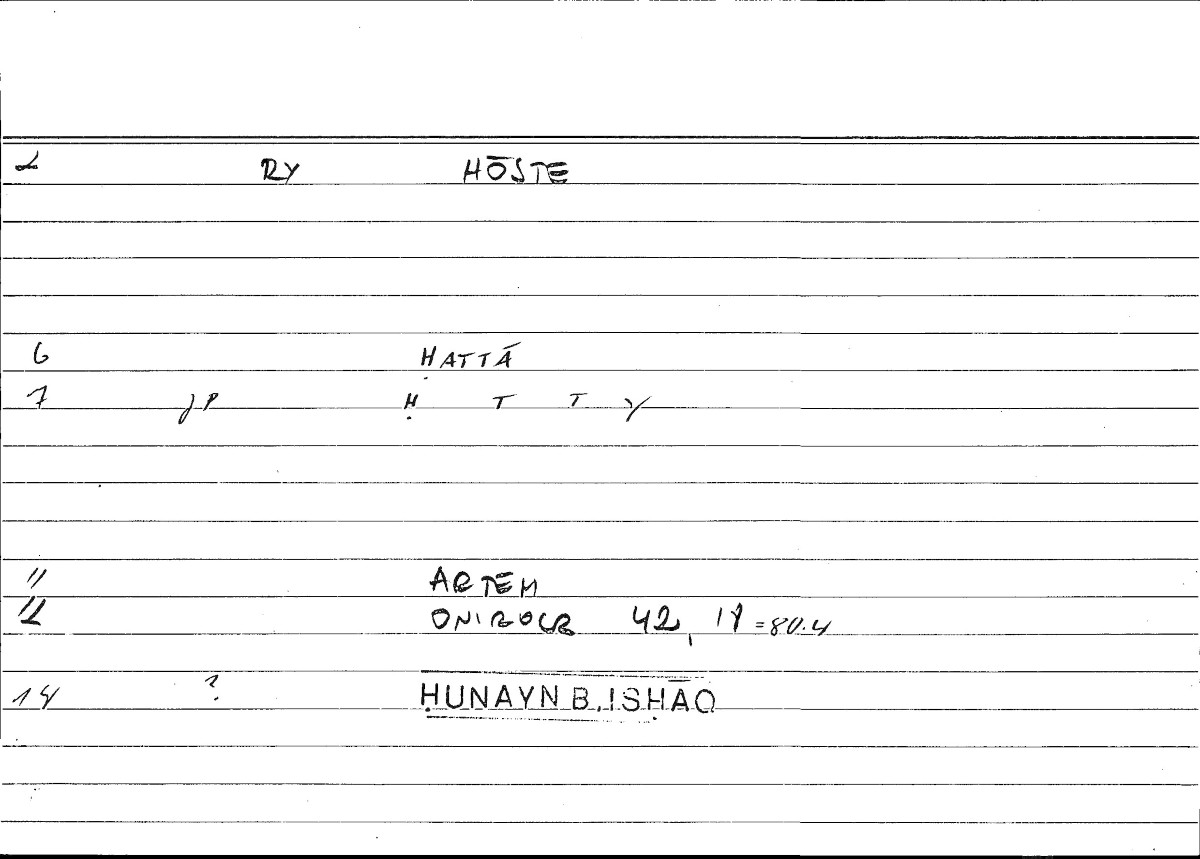 2 RY HŌSTE
6 ḤATTĀ
7 JP Ḥ T T Y
11 ARTEM
12 ONIROCR 42, 17 = 80.4
14 ? ḤUNAYN B. ISḤĀQ